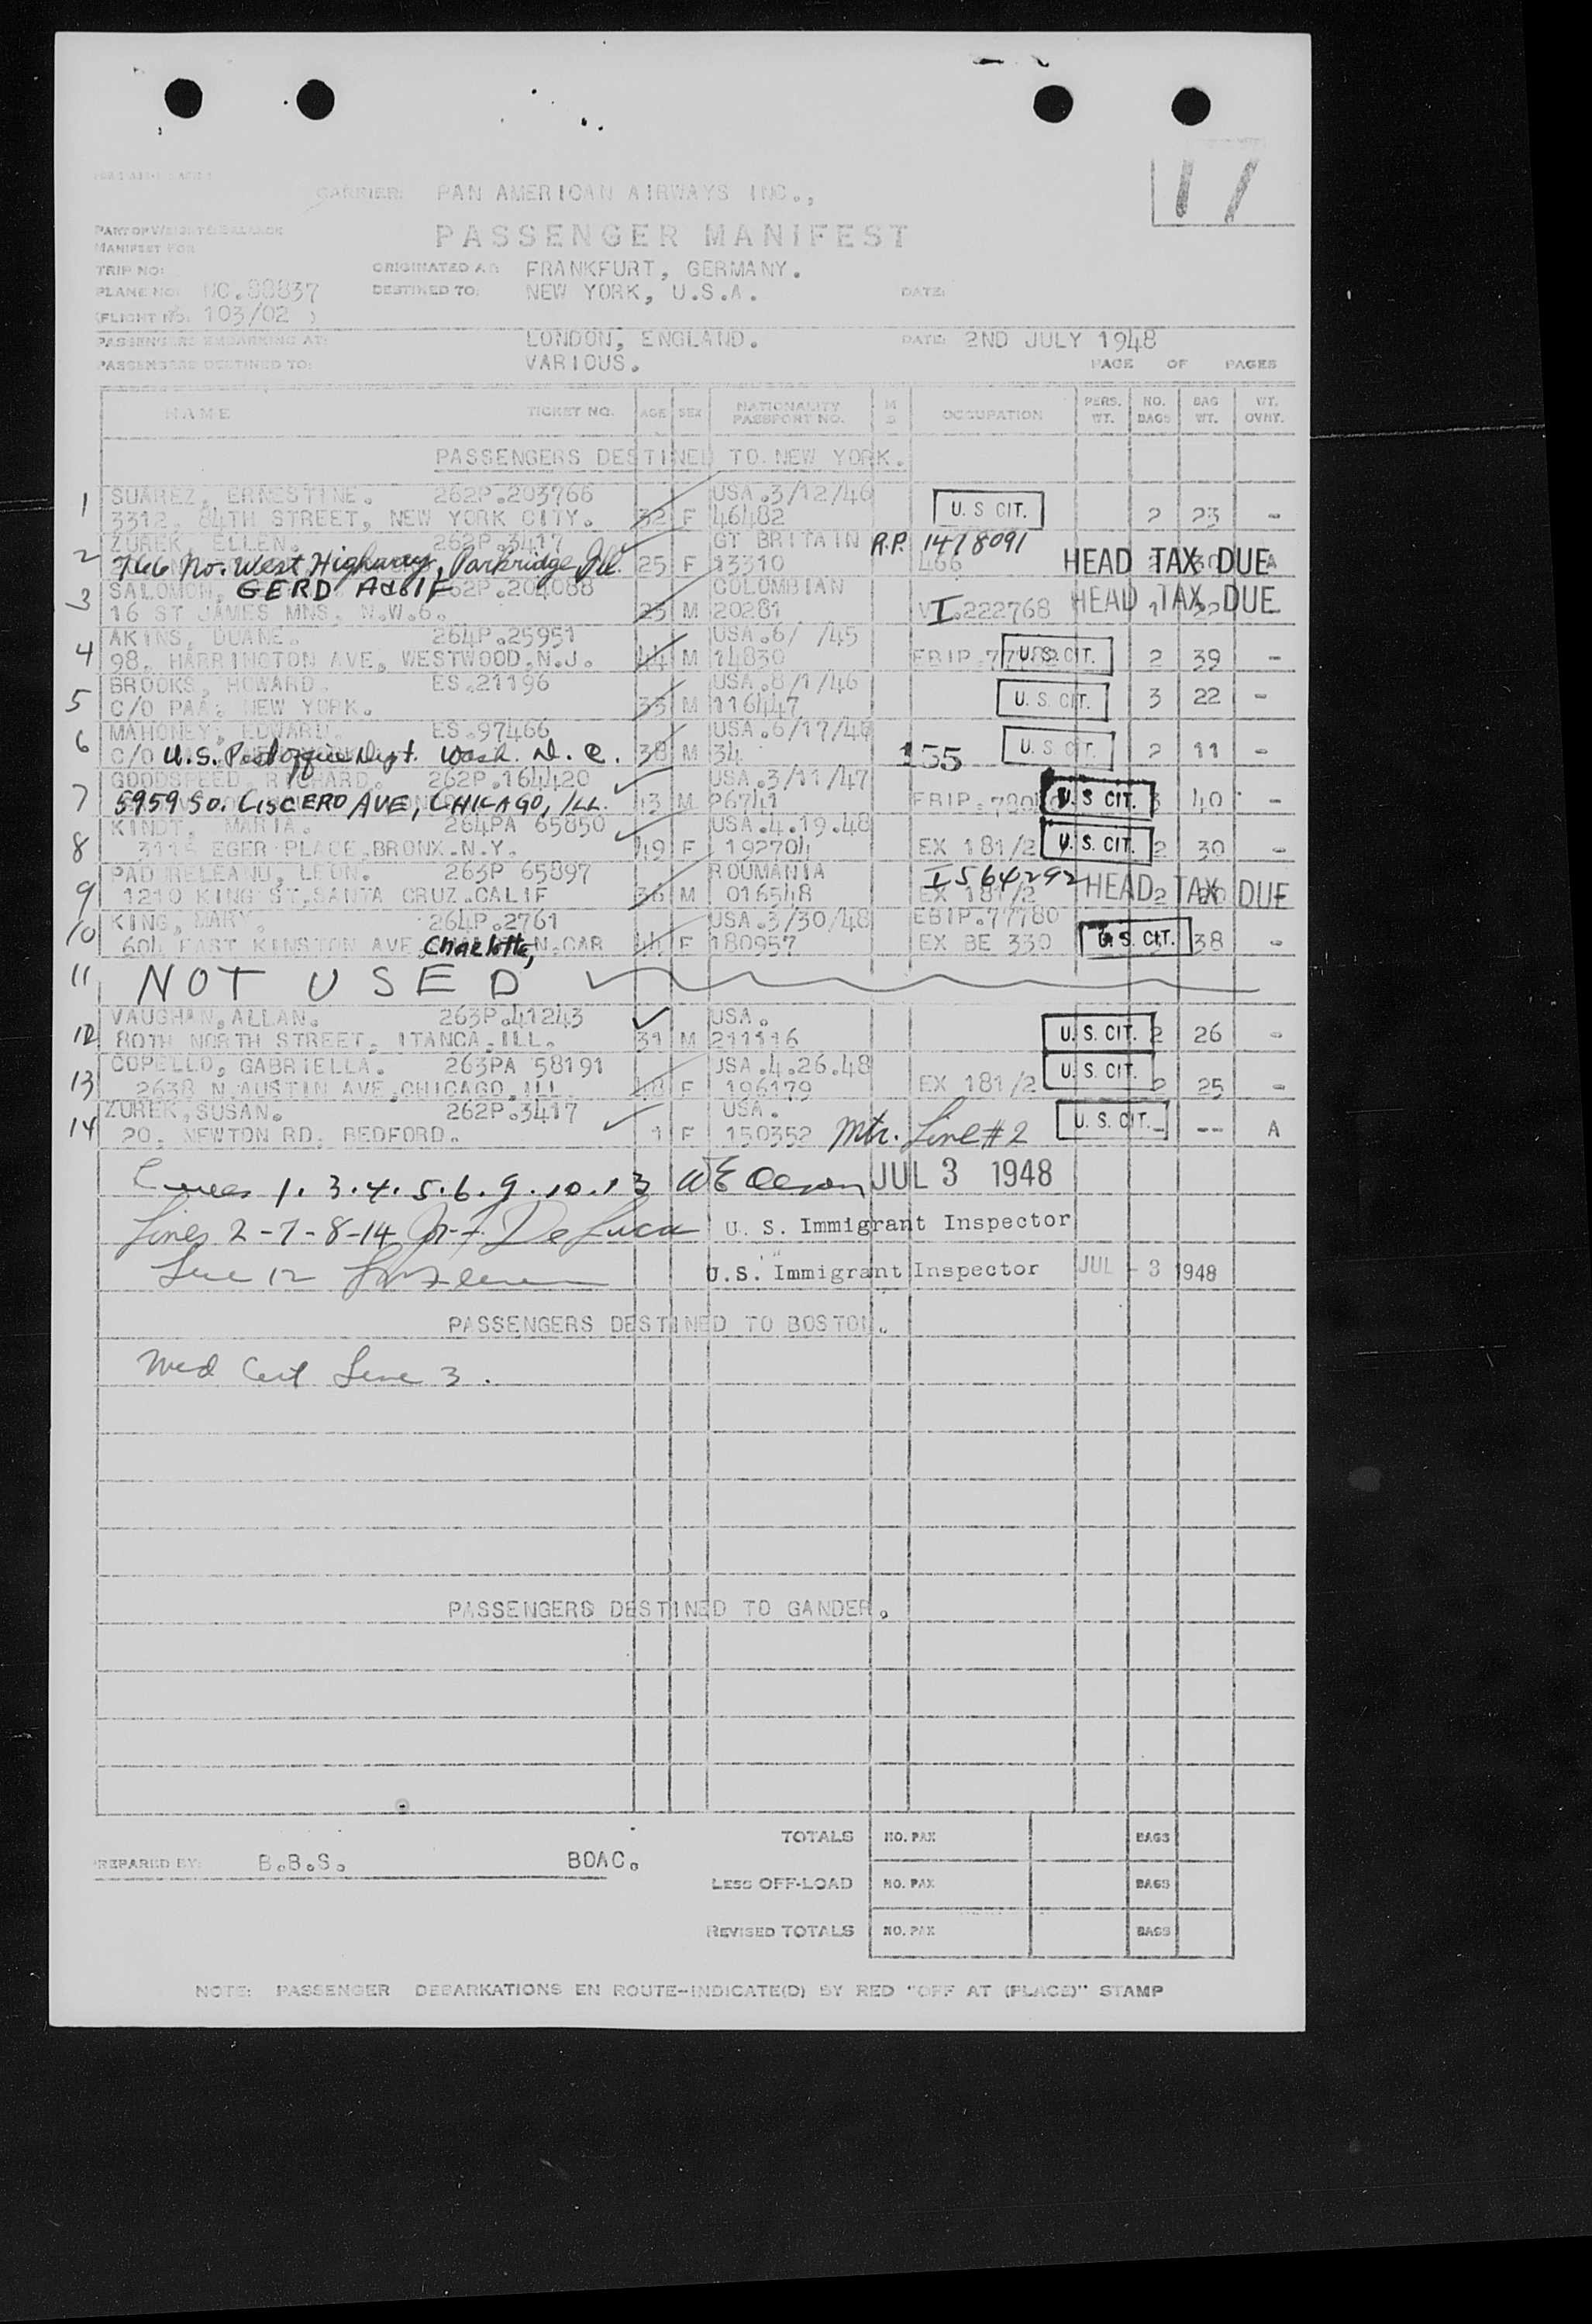 11
CARRIER: PAN AMERICAN AIRWAYS INC.,
PASSENGER MANIFEST
PART OF WEIGHT & BALANCE
MANIFEST FOR
TRIP NO:
ORIGINATED AT: FRANKFURT, GERMANY.
PLANE NO: NC.88837
DESTINED TO: NEW YORK, U.S.A. DATE:
(FLIGHT NO. 103/02 )
PASSENGERS EMBARKING AT: LONDON, ENGLAND. DATE: 2ND JULY 1948
PASSENGERS DESTINED TO: VARIOUS. PAGE OF PAGES
NAME TICKET NO. AGE SEX NATIONALITY PASSPORT NO. M S OCCUPATION PERS. WT. NO. BAGS BAG WT. WT. OVHT.
PASSENGERS DESTINED TO NEW YORK.
1 SUAREZ, ERNESTINE. 262P.203766 USA.3/12/46
3312, 84TH STREET, NEW YORK CITY. 32 F 46482 U. S CIT. 2 23 -
2 ZUREK, ELLEN. 262P.3417 GT BRITAIN R.P. 1478091
766 No. West Highway, Parkridge Ill. 25 F 13310 466 HEAD TAX DUE A
3 SALOMON, GERD Adolf 262P.204088 COLOMBIAN
16 ST JAMES MNS. N.W.6. 25 M 20281 I.222768 HEAD TAX DUE
4 AKINS, DUANE. 264P.25951 USA.6/ /45
98. HARRINGTON AVE, WESTWOOD.N.J. 44 M 14830 U. S. CIT. 2 39 -
5 BROOKS, HOWARD. ES.21196 USA.8/1/46
C/O PAA. NEW YORK. 35 M 116447 U. S. CIT. 3 22 -
6 MAHONEY, EDWARD. ES.97466 USA.6/17/48
C/O U.S. Post office Dept. Wash. D. C. 38 M 34 155 U. S CIT. 2 11 -
7 GOODSPEED, RICHARD. 262P.164420 USA.3/11/47
5959 So. CISCERO AVE, CHICAGO, ILL. 43 M 26741 U. S CIT. 3 40 -
8 KINDT, MARIA. 264PA 65850 USA.4.19.48
3115 EGER PLACE.BRONX.N.Y. 49 F 192704 EX 181/2 U. S. CIT. 2 30 -
9 PADURELEANU, LEON. 263P 65897 ROUMANIA I564292
1210 KING ST.SANTA CRUZ.CALIF 36 M 016548 EX 181/2 HEAD TAX DUE
10 KING, MARY . 264P.2761 USA.3/30/48 EBIP.77780
604 EAST KINSTON AVE Charlotte, N.CAR 44 F 180957 EX BE 330 U. S. CIT. 38 -
11 NOT USED
12 VAUGHAN, ALLAN. 263P.41243 USA.
80TH NORTH STREET, ITANCA.ILL. 31 M 211116 U. S. CIT. 2 26 -
13 COPELLO, GABRIELLA. 263PA 58191 USA.4.26.48
2638 N.AUSTIN AVE.CHICAGO.ILL 48 F 196179 EX 181/2 U. S. CIT. 2 25 -
14 ZUREK, SUSAN. 262P.3417 USA.
20, NEWTON RD. BEDFORD. 1 F 150352 Mtr. Line #2 U. S. CIT. - -- A
Lines 1. 3. 4. 5. 6. 9. 10. 13 JUL 3 1948
Lines 2-7-8-14 De Luca U. S. Immigrant Inspector
Line 12 U.S. Immigrant Inspector JUL - 3 1948
PASSENGERS DESTINED TO BOSTON.
Med Cert Line 3.
PASSENGERS DESTINED TO GANDER.
TOTALS NO. PAX BAGS
PREPARED BY: B.B.S. BOAC.
LESS OFF-LOAD NO. PAX BAGS
REVISED TOTALS NO. PAX BAGS
NOTE: PASSENGER DEBARKATIONS EN ROUTE-INDICATE(D) BY RED "OFF AT (PLACE)" STAMP